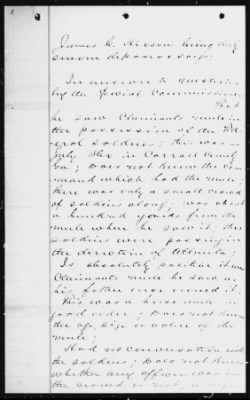 James H. being duly
sworn deposes & says:
In answer to questions
by the Special Commissioner
That
he saw Claimants mule in
the possession of the Fed
eral soldiers; this was in
July 864 in Carroll County
Ga; Does not know the com
mand which had the mule;
there was only a small crowd
of soldiers along; was about
a hundred yards from the
mule when he saw it; the
soldiers were passing in
the direction of Atlanta;
Is absolutely positive it was
Claimants mule he saw as
his father once owned it
This was a horse mule in
good order; Does not know
the age, size or value of the
mule;
Had no conversation with
the soldiers; Does not know
whether any officer was in
the crowd or not,